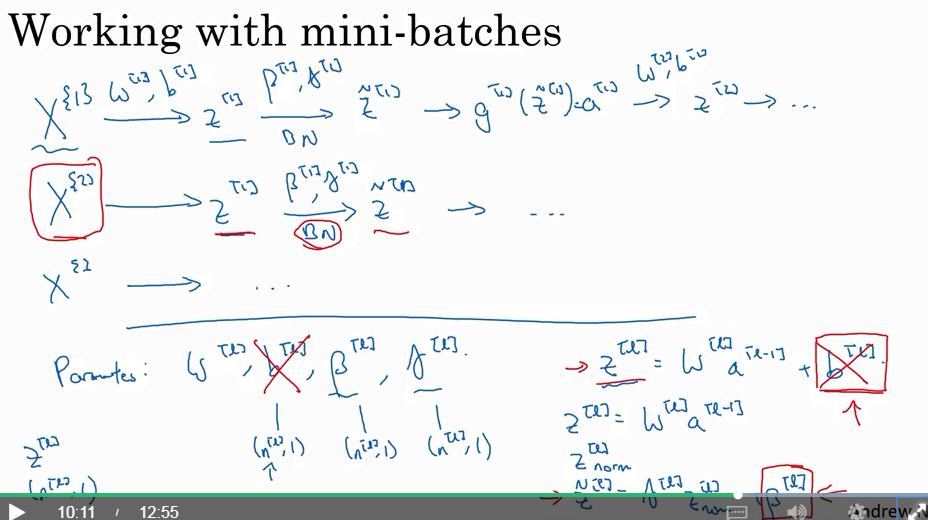 Working with mini-batches
X^{1} W^[1], b^[1] → z^[1] β^[1], γ^[1] → BN z̃^[1] → g^[1](z̃^[1]) = a^[1] → W^[2], b^[2] z^[2] → ...
X^{2} → z^[1] β^[1], γ^[1] → BN z̃^[1] → ...
X^{3} → ...
Parameters: W^[l], b^[l], β^[l], γ^[l].
(n^[l], 1) (n^[l], 1) (n^[l], 1)
z^[l]
(n^[l], 1)
→ z^[l] = W^[l] a^[l-1] + b^[l].
z^[l] = W^[l] a^[l-1]
z^[l] norm
→ z̃^[l] = γ^[l] z^[l] norm β^[l] ←
10:11 / 12:55
Andrew N